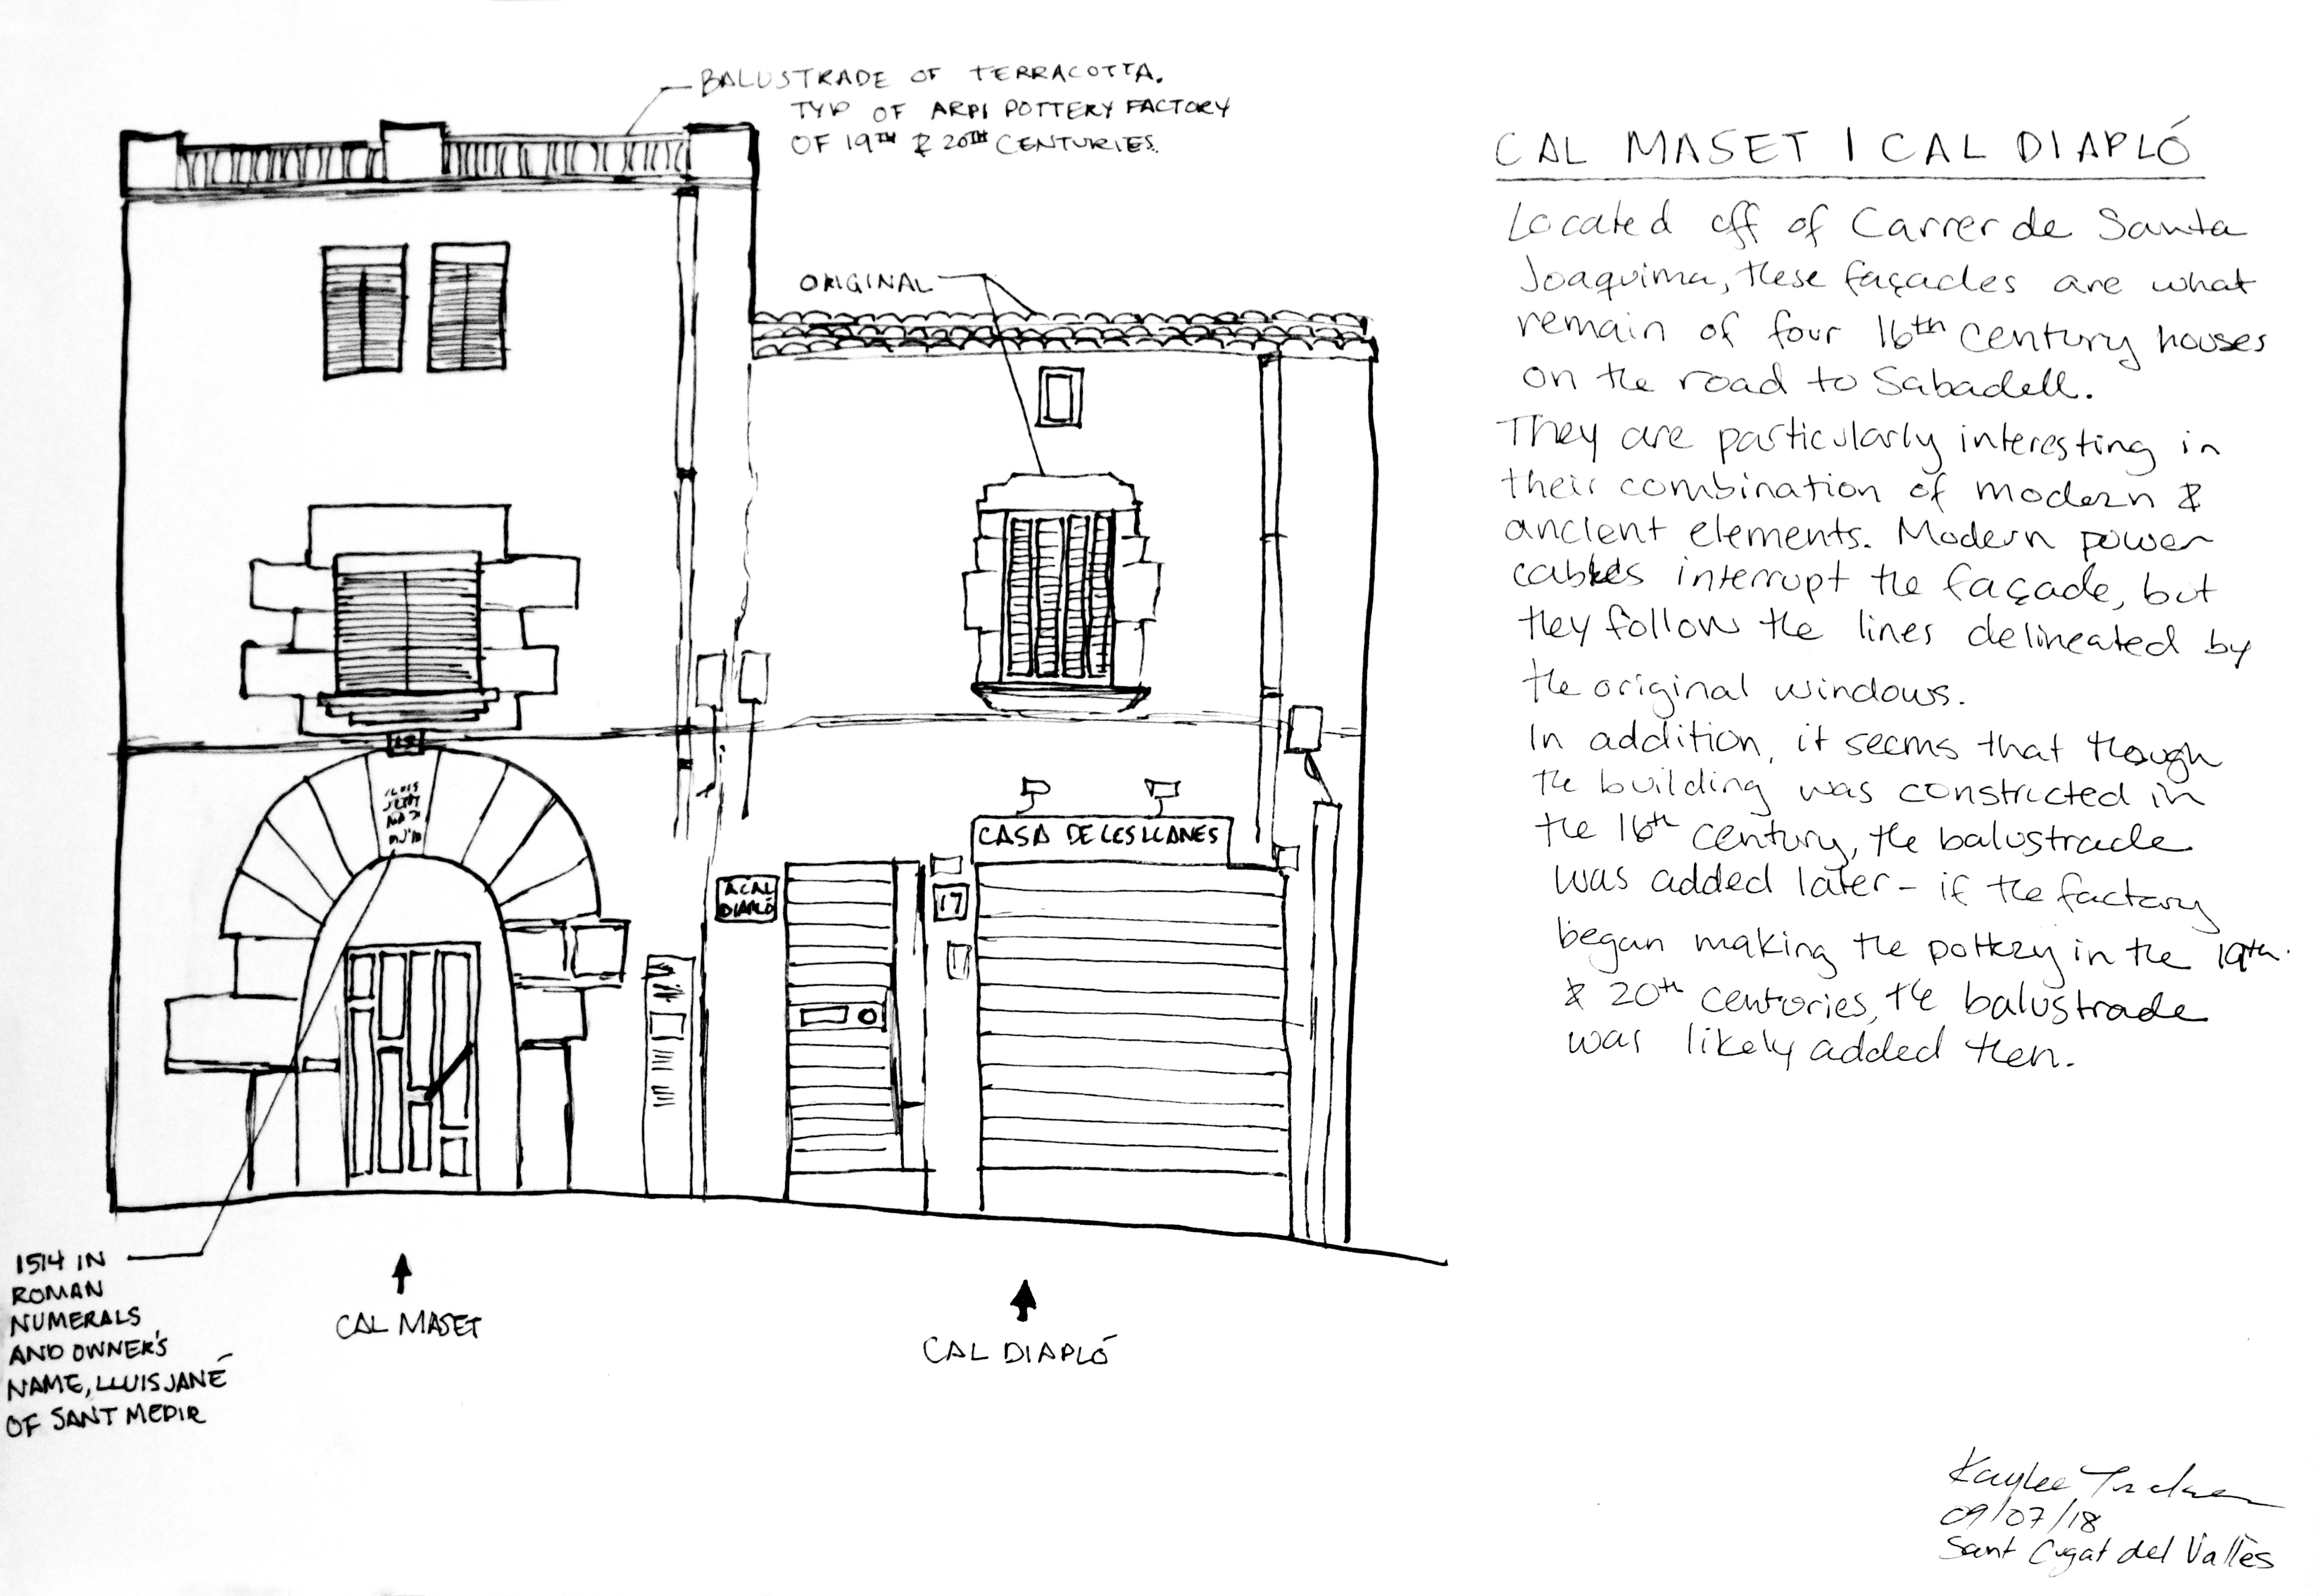 BALUSTRADE OF TERRACOTTA.
TYP OF ARPI POTTERY FACTORY
OF 19TH & 20TH CENTURIES.
ORIGINAL
CASA DE LES LLANES
A CAL
DIAPLÓ
17
1514 IN
ROMAN
NUMERALS
AND OWNER'S
NAME, LLUIS JANÉ
OF SANT MEDIR
CAL MASET
CAL DIAPLÓ
CAL MASET | CAL DIAPLÓ
Located off of Carrer de Santa
Joaquima, these façades are what
remain of four 16th century houses
on the road to Sabadell.
They are particularly interesting in
their combination of modern &
ancient elements. Modern power
cables interrupt the façade, but
they follow the lines delineated by
the original windows.
In addition, it seems that though
the building was constructed in
the 16th century, the balustrade
was added later - if the factory
began making the pottery in the 19th
& 20th centuries, the balustrade
was likely added then.
Kaylee
09/07/18
Sant Cugat del Vallès